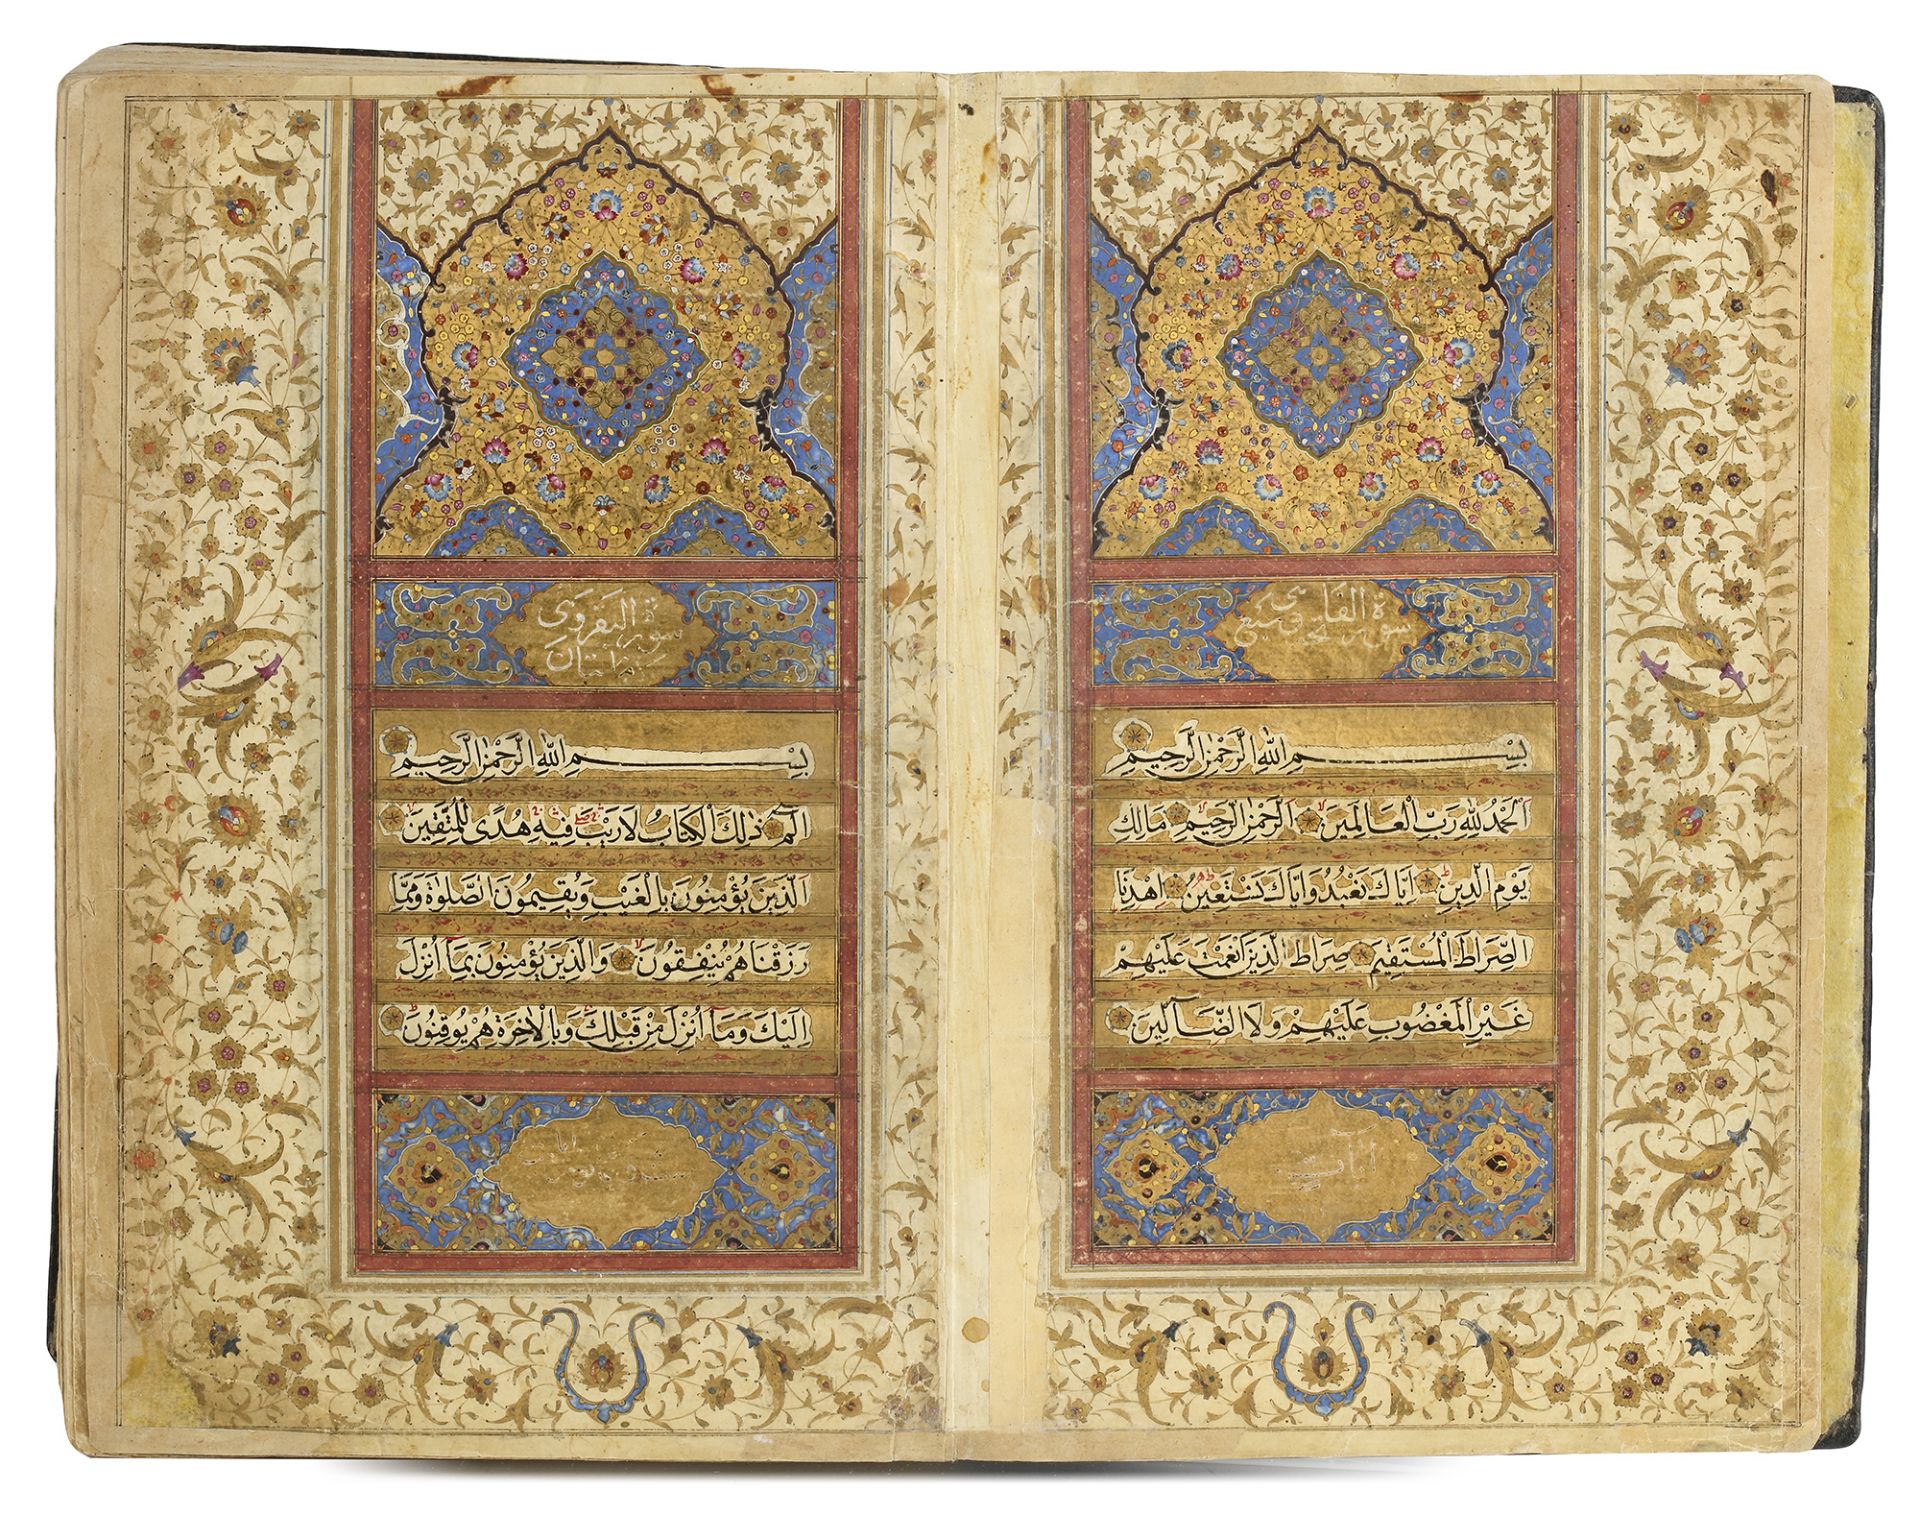 سورة الفاتحة سبع
بِسْمِ اللّٰهِ الرَّحْمٰنِ الرَّحِيمِ
اَلْحَمْدُ لِلّٰهِ رَبِّ الْعَالَمِينَ اَلرَّحْمٰنِ الرَّحِيمِ مَالِكِ
يَوْمِ الدِّينِ اِيَّاكَ نَعْبُدُ وَاِيَّاكَ نَسْتَعِينُ اِهْدِنَا
الصِّرَاطَ الْمُسْتَقِيمَ صِرَاطَ الَّذِينَ اَنْعَمْتَ عَلَيْهِمْ
غَيْرِ الْمَغْضُوبِ عَلَيْهِمْ وَلَا الضَّآلِّينَ
سورة البقرة
مائتان
بِسْمِ اللّٰهِ الرَّحْمٰنِ الرَّحِيمِ
الٓمٓ ذٰلِكَ الْكِتَابُ لَا رَيْبَ فِيهِ هُدًى لِلْمُتَّقِينَ
اَلَّذِينَ يُؤْمِنُونَ بِالْغَيْبِ وَيُقِيمُونَ الصَّلٰوةَ وَمِمَّا
رَزَقْنَاهُمْ يُنْفِقُونَ وَالَّذِينَ يُؤْمِنُونَ بِمَآ اُنْزِلَ
اِلَيْكَ وَمَآ اُنْزِلَ مِنْ قَبْلِكَ وَبِالْاٰخِرَةِ هُمْ يُوقِنُونَ